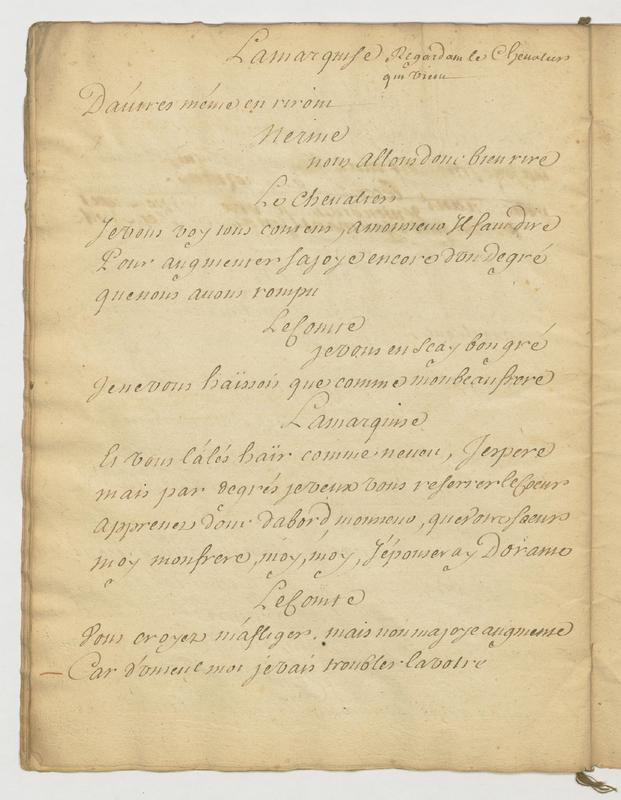 Lamarquise Regardant le Chevalier
qui vient
D'autres même en riront
Nerine
nous allons donc bien rire
Le Chevalier
Je vous voy tous contens, a monsieur Il faut dire
Pour augmenter sa joye encore d'un degré
que nous avons rompu
Le Comte
je vous en sçay bon gré
Je ne vous haïssois que comme mon beaufrere
Lamarquise
Et vous l'alés haïr comme neveu, J'espere
mais par degrés je veux vous reserrer le Coeur
apprenez donc d'abord monsieur, que votre soeur
moy mon frere, moy, moy, J'épouseray Dorante
Le Comte
Vous croyez m'afliger. mais non ma joye augmente
Car d'un seul mot je vais troubler la votre